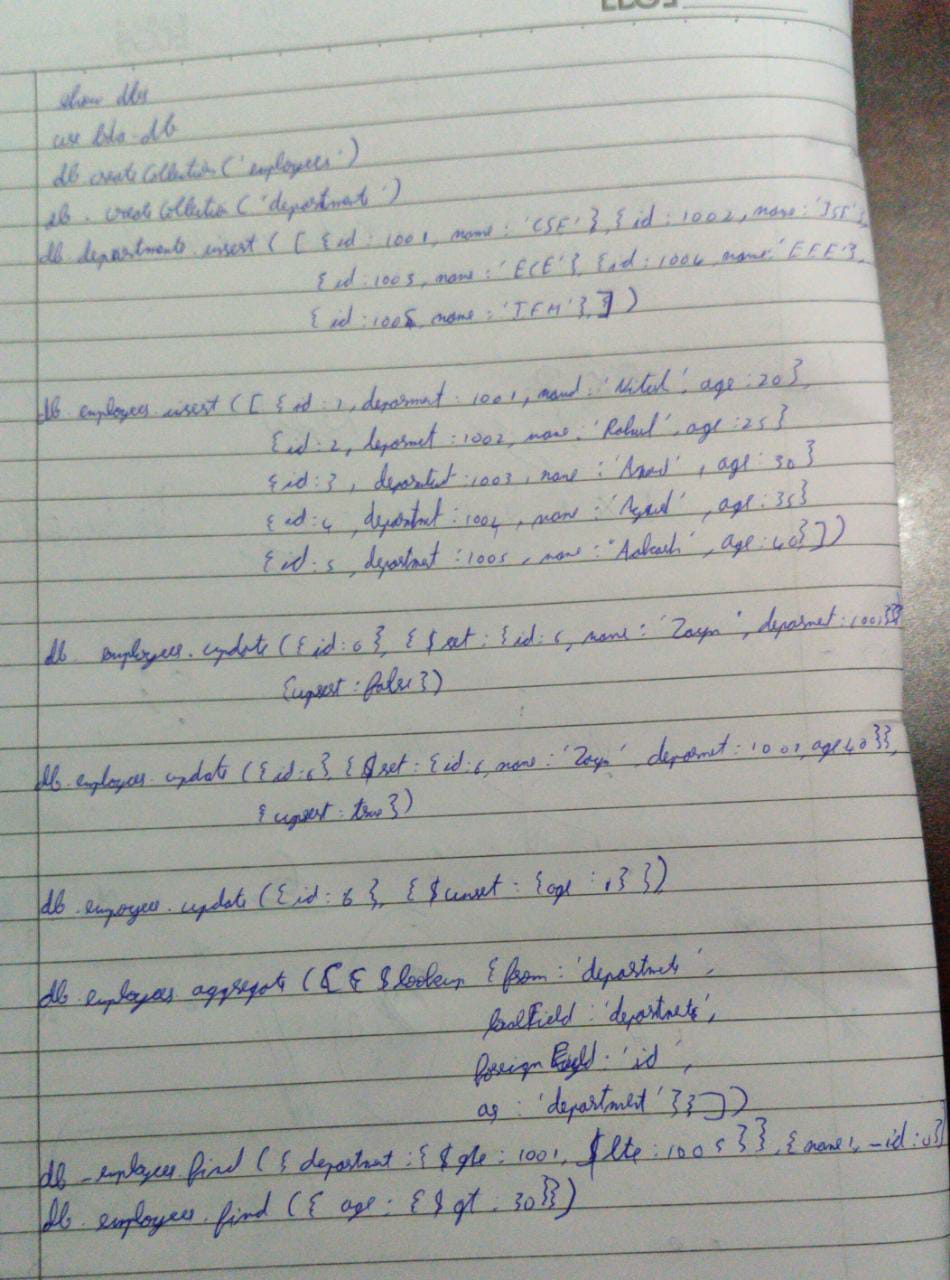 show dbs
use bda-db
db createCollection('employees')
db. createCollection('department')
db. departments. insert ( [ {id: 1001, name: 'CSE'}, {id: 1002, name: 'ISE'},
{id: 1003, name: 'ECE'}, {id: 1004, name: 'EEE'},
{id: 1005, name: 'TEM'},] )
db. employees. insert ([ {id: 1, deparment: 1001, name: 'Nitesh', age: 20},
{id: 2, deparmet: 1002, name: 'Rahul', age: 25}
{id: 3, department: 1003, name: 'Anand', age: 30}
{id: 4, department: 1004, name: , age: 35}
{id: 5, department: 1005, name: 'Aakash', age: 40}])
db. employees. update ({id: 6}, {$set: {id: 6, name: 'Zayn', deparmet: 1001}}
{upsert: false})
db. employees. update ({id: 6} {$set: {id: 6, name: 'Zayn' deparmet: 1001, age 40}},
{upsert: true})
db. empoyees. update ({id: 6}, {$unset: {age: 1} })
db. employees aggregate ([{ $lookup {from: 'departmets',
localField: 'departmets',
foreign Field: 'id',
as: 'department'}}])
db - employees. find ({ department: {$gte: 1001, $lte: 1005}}, {name 1, -id: 0}
db. employees. find ({ age: {$gt: 30}})